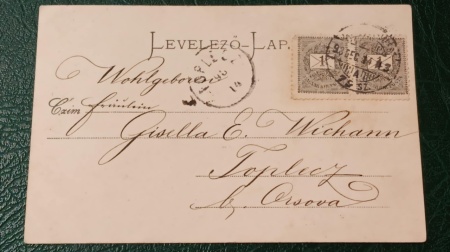 LEVELEZŐ-LAP.
Wohlgeboren
Czim Fräulein
Gisella E. Wichann
Toplecz
b. Orsova